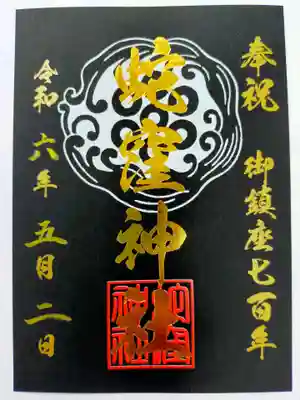 奉祝 御鎮座七百年
蛇窪神社
令和六年五月二日